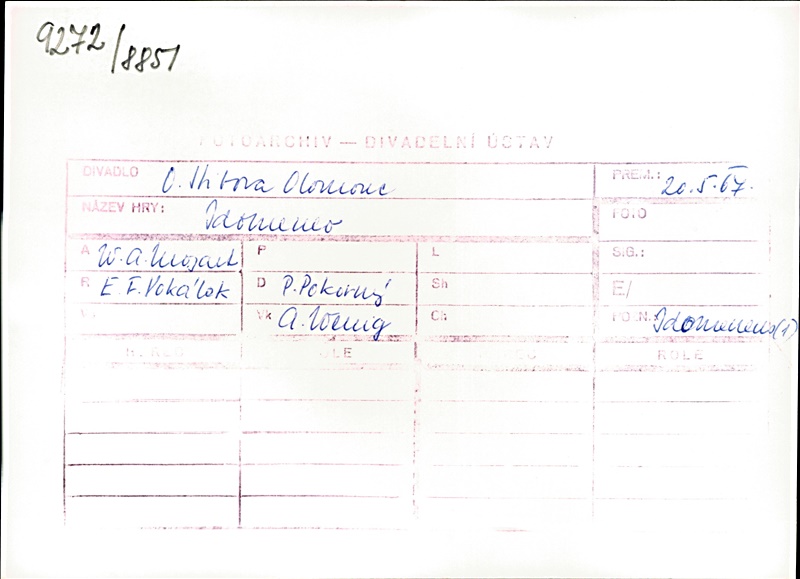 9272/8851
FOTOARCHIV — DIVADELNÍ ÚSTAV
DIVADLO O. Stibora Olomouc PREM.: 20.5.67.
NÁZEV HRY: Idomeneo FOTO
A W. A. Mozart P L SIG.:
R E. F. Vokálek D P. Pokorný Sh E/
Vk A. Wenig Ch POZN.: Idomeneo (1)
ROLE